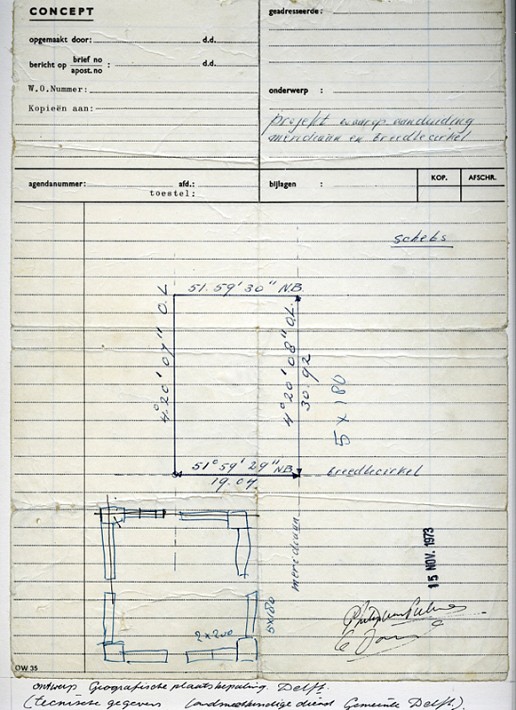 CONCEPT
geadresseerde:
opgemaakt door: d.d.
bericht op brief no : d.d.
apost.no
W.O.Nummer:
onderwerp :
Kopieën aan:
projekt waarop aanduiding
meridiaan en breedtecirkel
agendanummer: afd.: bijlagen : KOP. AFSCHR.
toestel:
schets
51.59'30" N.B.
4°20'07" O.L.
4°20'08" O.L.
30.92
5 x 180
51°59'29" N.B.
19.07
breedtecirkel
meridiaan
15 NOV. 1973
5x180
2x200
OW 35
ontwerp Geografische plaatsbepaling. Delft.
(technische gegevens Landmeetkundige dienst Gemeente Delft).